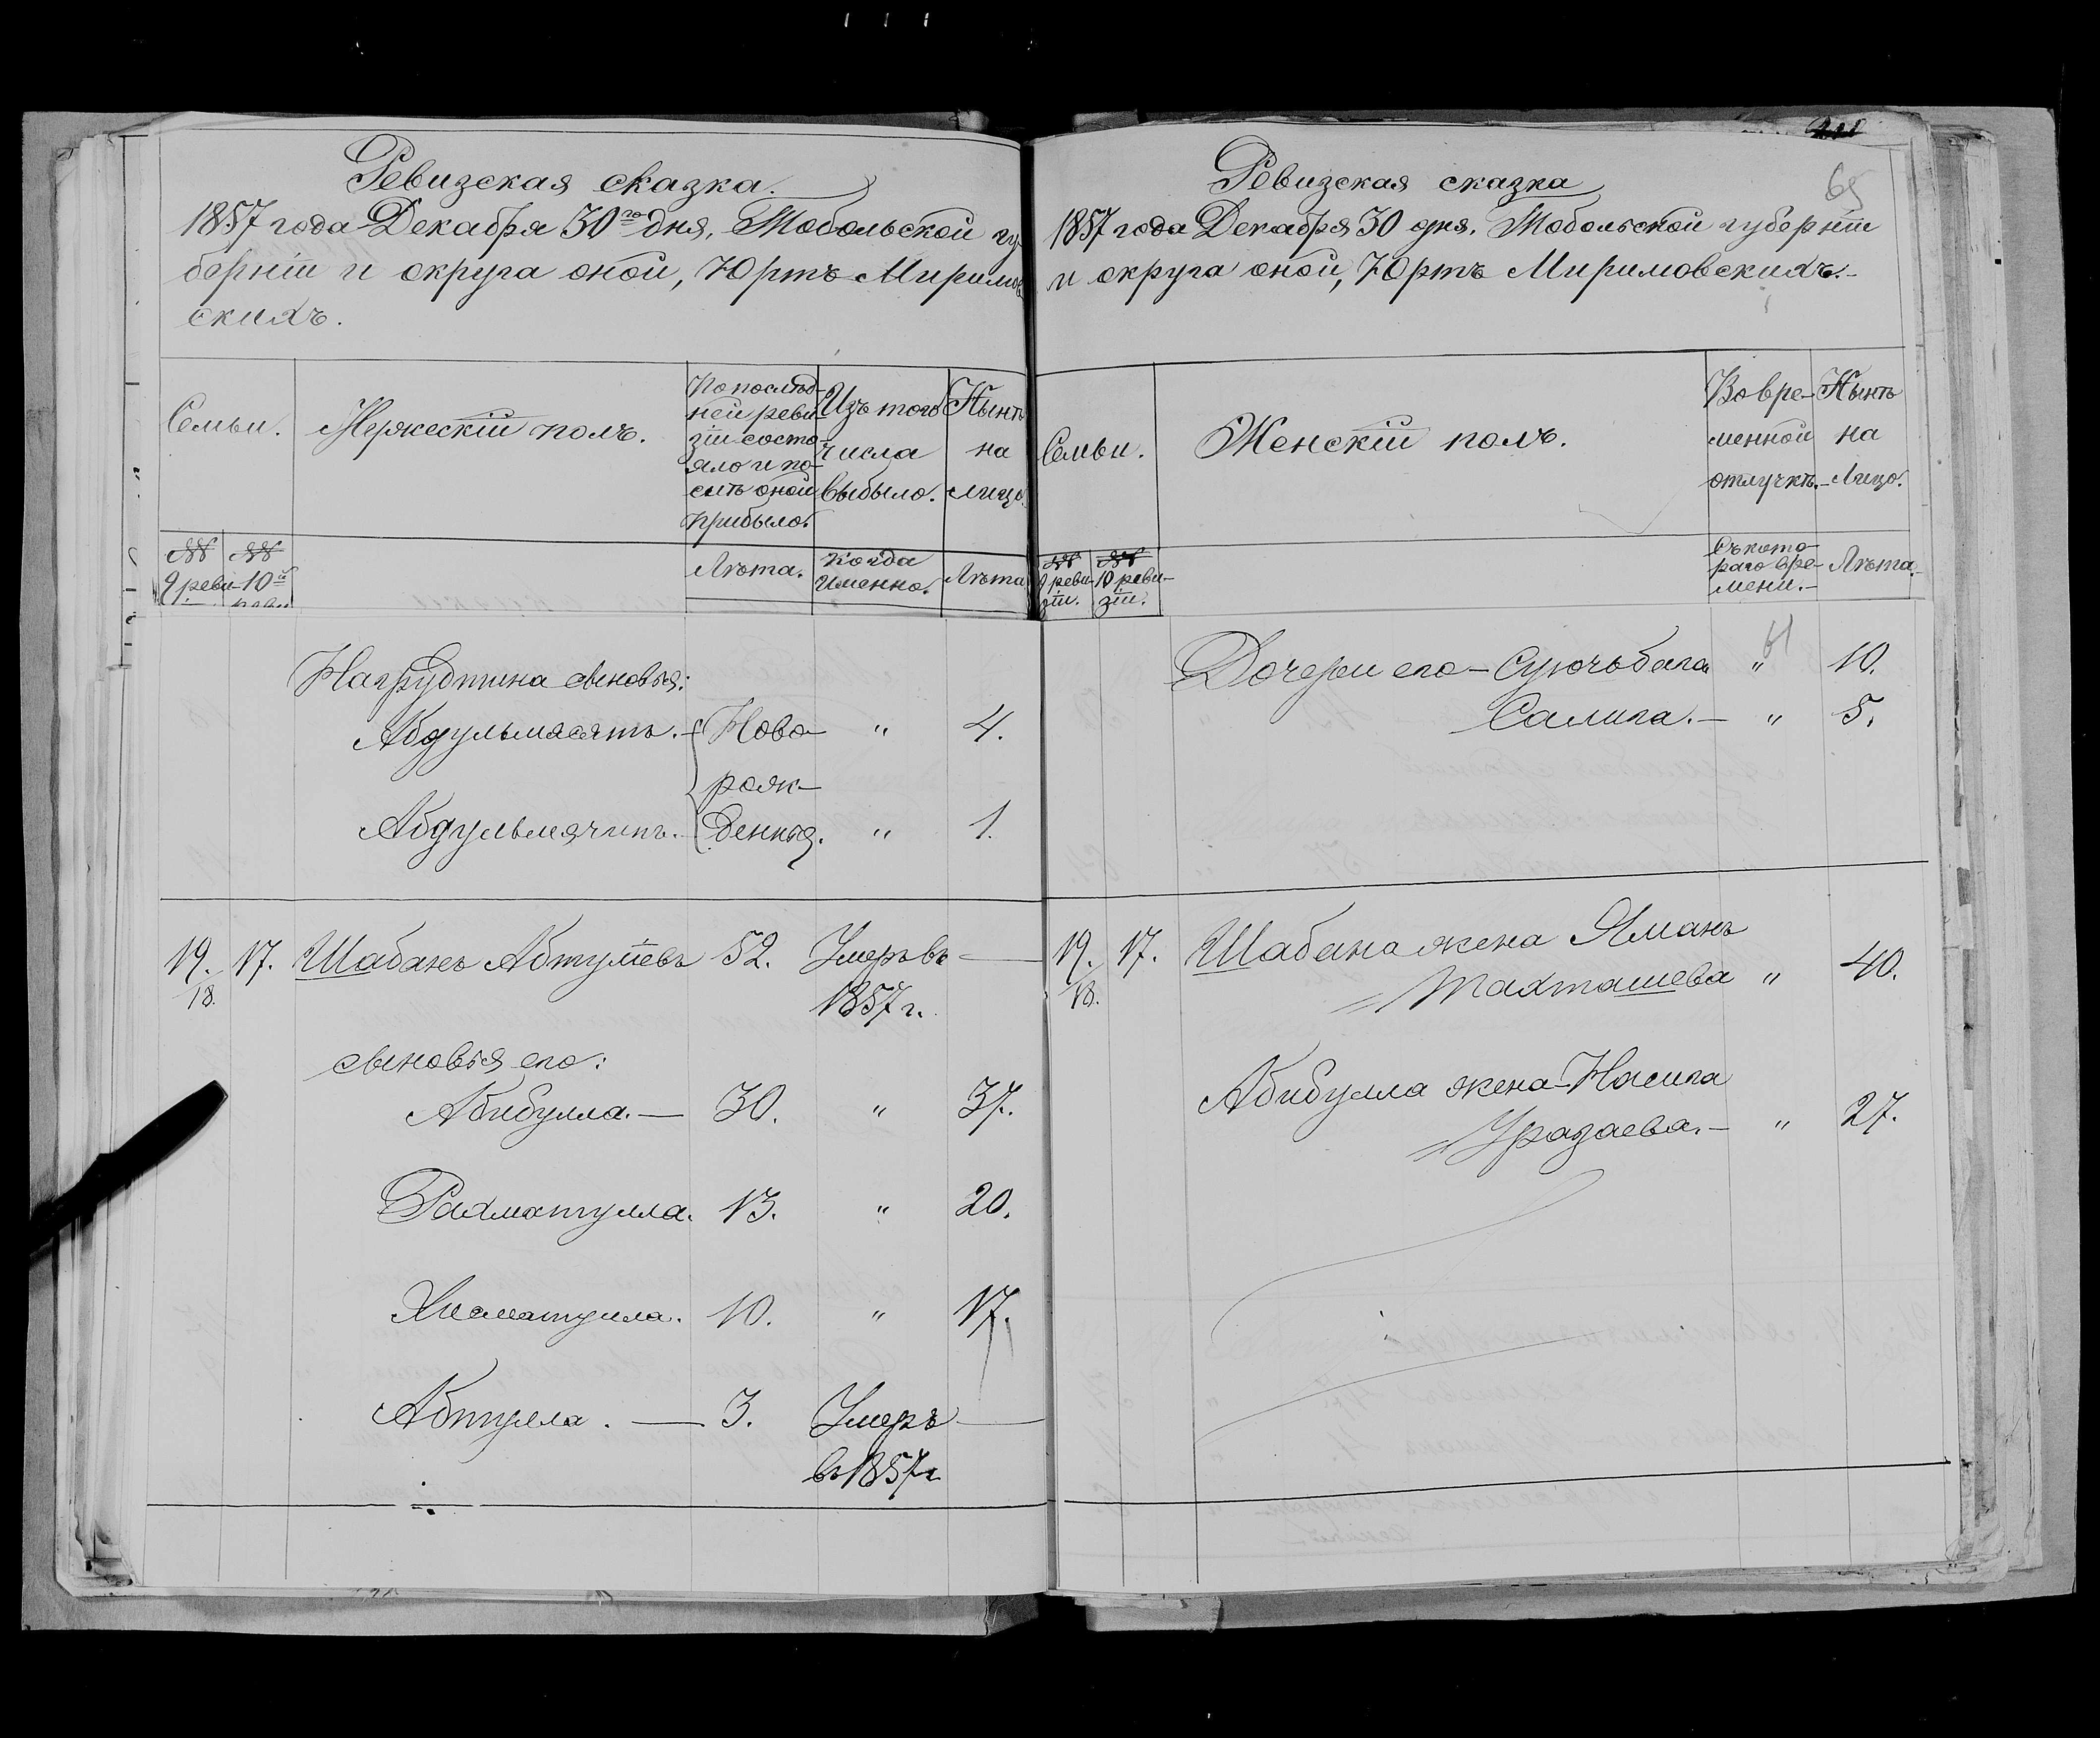 Ревизская сказка.
1857 года Декабря 30го дня, Тобольской гу-
берніи и округа оной, Юртъ Миримов
скихъ.
Семьи.
Мужескій полъ.
По послѣд-
ней реви-
зіи состо-
яло и по-
слѣ оной
прибыло.
Изъ того
числа
выбыло.
Нынѣ
на
лицо.
№№
9 реви-
№№
10й
реви
Лѣта.
Когда
именно.
Лѣта
Нагрудтина сыновья:
Абдульмасятъ. Ново- " 4.
рож-
Абдульмячипъ. денныя. " 1.
19. 17. Шабанъ Абтулѣевъ 52. Умеръ въ —
18. 1857 г.
сыновья его:
Абибулла. — 30. " 37.
Рахматулла. 13. " 20.
Хисматулла. 10. " 17.
Абтулла. — 3. Умеръ —
въ 1857 г
Ревизская сказка
65
1857 года Декабря 30 дня. Тобольской губерніи
и округа оной, Юртъ Миримовскихъ.-
Семьи.
Женскій полъ.
Во вре-
менной
отлучкѣ.-
Нынѣ
на
Лицо.
№№
9 реви-
зіи.
№№
10 реви-
зіи.
Съ кото-
раго вре-
мени.-
Лѣта.
Дочери его - Суючьбига " 10.
Салига. — " 5.
19. 17. Шабана жена Яманъ
18. Тахташева " 40.
Абибулла жена - Насига
Уразаева. — " 27.